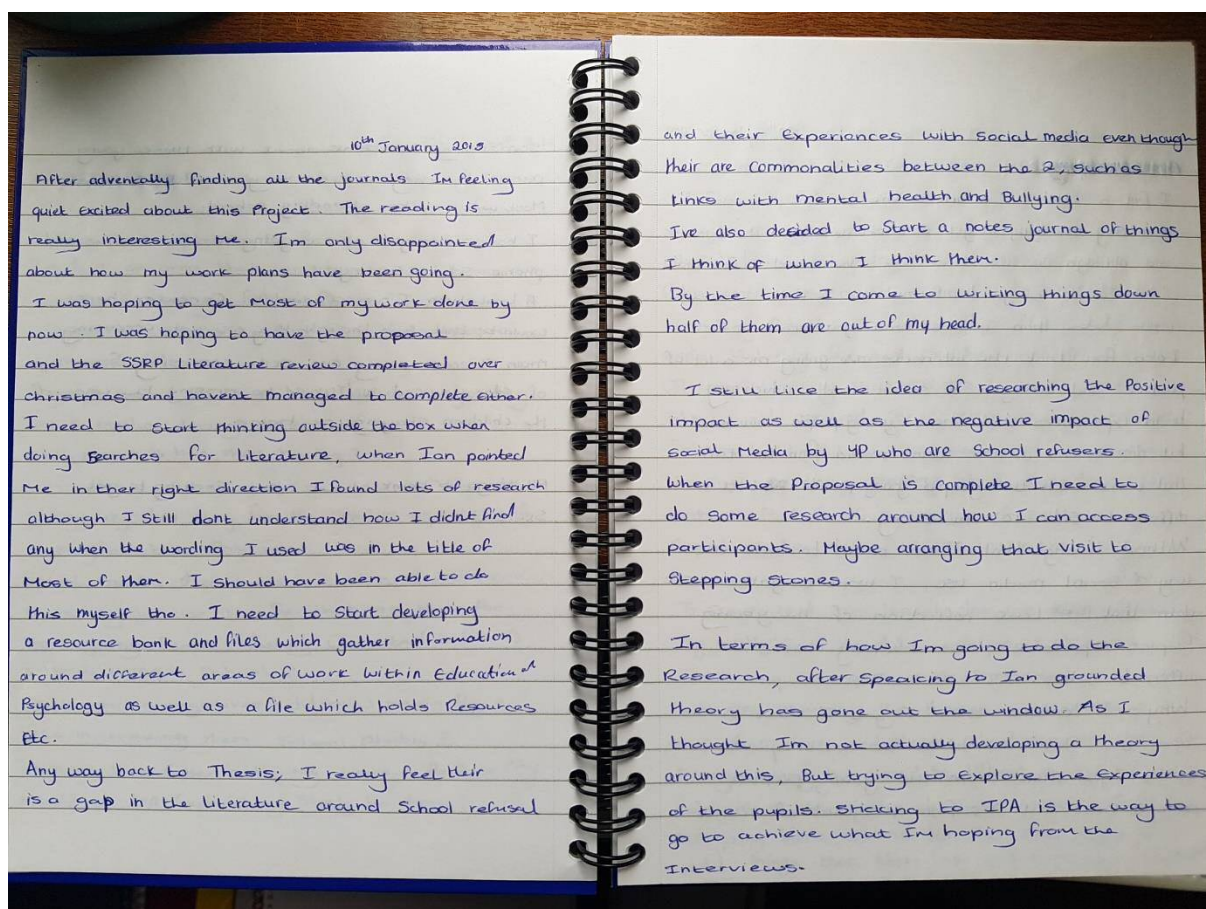 10th January 2019
After adventally finding all the journals Im feeling
quiet excited about this Project. The reading is
really interesting me. Im only disappointed
about how my work plans have been going.
I was hoping to get Most of my work done by
now. I was hoping to have the proposal
and the SSRP Literature review completed over
christmas and havent managed to complete either.
I need to Start thinking outside the box when
doing Searches for Literature, when Ian pointed
Me in ther right direction I found lots of research
although I Still dont understand how I didnt find
any when the wording I used was in the title of
Most of them. I should have been able to do
this myself tho. I need to Start developing
a resource bank and files which gather information
around different areas of work within Educational
Psychology as well as a file which holds Resources
Etc.
Any way back to Thesis; I really feel their
is a gap in the Literature around School refusal
and their Experiances with Social media even though
their are commonalities between the 2, such as
Links with mental health and Bullying.
Ive also decided to Start a notes journal of things
I think of when I think them.
By the time I come to writing things down
half of them are out of my head.
I still like the idea of researching the Positive
impact as well as the negative impact of
Social Media by YP who are School refusers.
When the Proposal is complete I need to
do Some research around how I can access
participants. Maybe arranging that visit to
Stepping Stones.
In terms of how Im going to do the
Research, after Speaking to Ian grounded
theory has gone out the window. As I
thought Im not actually developing a theory
around this, But trying to Explore the Experiences
of the pupils. Sticking to IPA is the way to
go to achieve what Im hoping from the
Interviews.